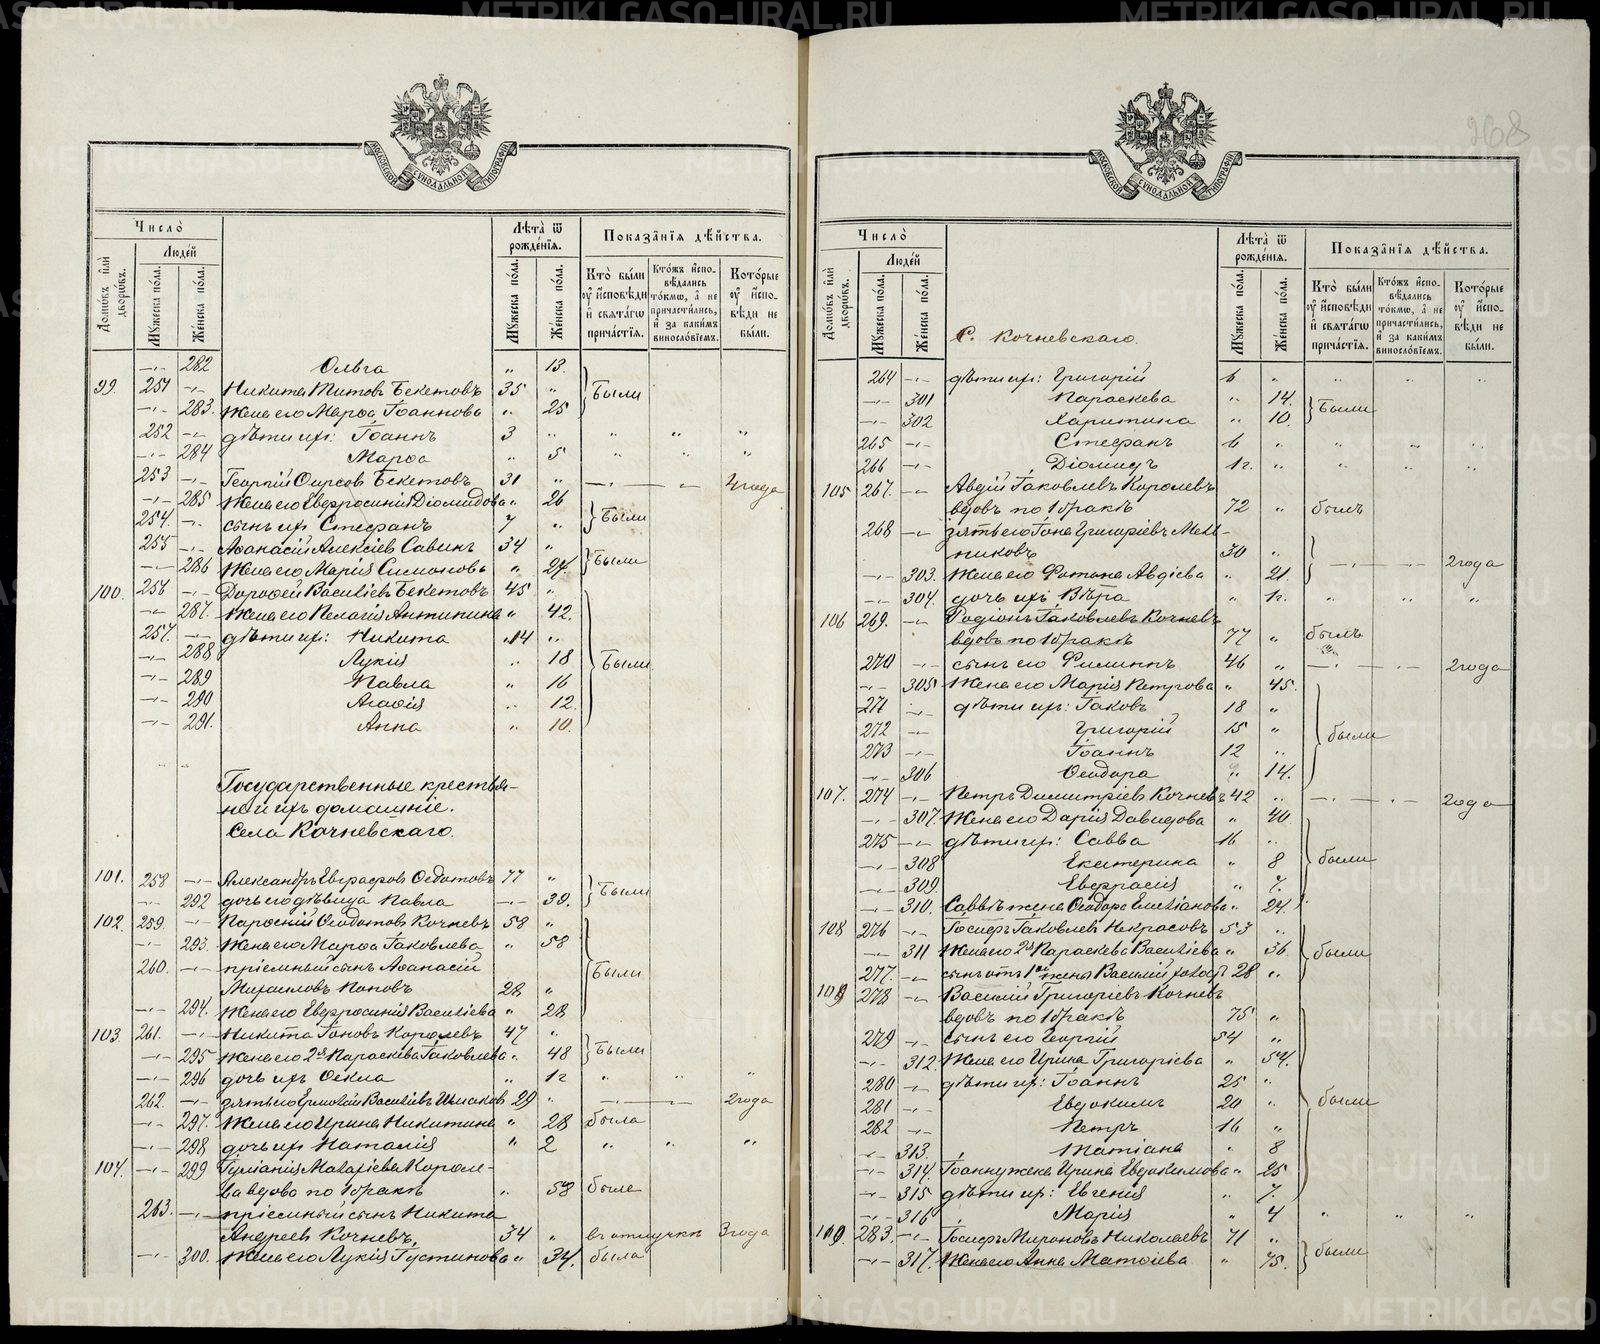 МОСКОВСКОЙ СѴНОДАЛЬНОЙ ТИПОГРАФІИ
Число̀
Людей
Домѡвъ и҆лѝ дворѡвъ.
Мꙋжеска по́ла.
Же́нска по́ла.
Лѣта̀ ѿ рожде́нїѧ.
Мꙋжеска по́ла.
Же́нска по́ла.
Показа̑нїѧ дѣ́йства.
Кто̀ бы́ли ᲂу҆ и҆сповѣди и҆ свѧта́гѡ прича́стїѧ.
Кто́жъ и҆спо-вѣ́дались то́кмѡ, а҆ не причасти́лись, и҆ за каки́мъ винословїемъ.
Кото́рые ᲂу҆ и҆спо-вѣди не бы́ли.
-"- 282 Ольга " 13.
99. 251 -"- Никита Титовъ Бекетовъ 35 " } Были
-"- 283. Жена его Марѳа Іоаннова " 25
252 -"- дѣти ихъ: Іоаннъ 3 " " " "
-"- 284 Марѳа " 5 " " "
253 -"- Георгій Ѳирсовъ Бекетовъ 31 " -"- " 4 года
-"- 285 Жена его Евфросинія Діомидова " 26 } Были
254. -"- сынъ ихъ Стефанъ 7 "
255 -"- Аѳанасій Алексіевъ Савинъ 34 " } Были
-"- 286 Жена его Марія Симонова " 24
100. 256 -"- Дорофей Василіевъ Бекетовъ 45 "
-"- 287. Жена его Пелагія Антипина " 42.
257. -"- дѣти ихъ: Никита 14 "
-"- 288 Лукія " 18 } Были
-"- 289 Павла " 16
-"- 290 Агаѳія " 12
-"- 291. Анна " 10.
Государственные крестья-
не и ихъ домашніе.
Села Кочневскаго.
101. 258 -"- Александръ Евграфовъ Ѳедотовъ 77 " } Были
-"- 292 дочь его дѣвица Павла -"- 39.
102. 259. -"- Парѳеній Ѳеодотовъ Кочневъ 58 "
-"- 293. Жена его Марѳа Іаковлева " 58
260. -"- пріемный сынъ Аѳанасій
Михаиловъ Поповъ 28 " } Были
-"- 294. Жена его Евфросинія Василіева " 28
103. 261. -"- Никита Іоновъ Королевъ 47 " } Были
-"- 295 Жена его 2я Параскева Іаковлева " 48
-"- 296 дочь ихъ Ѳекла " 1г " " "
262. -"- зять его Ермолай Василіевъ 29 " -"- 2 года
-"- 297. Жена его Ирина Никитина " 28 была
-"- 298 дочь ихъ Наталія " 2 " " "
104. -"- 299 Іуліанія Макаріева Короле-
ва вдова по 1 бракѣ " 58 была
263. -"- пріемный сынъ Никита
Андреевъ Кочневъ, 34 " въ отлучкѣ 3 года
-"- 300. Жена его Лукія Іустинова " 34. была
268
МОСКОВСКОЙ СѴНОДАЛЬНОЙ ТИПОГРАФІИ
Число̀
Людей
Домѡвъ и҆лѝ дворѡвъ.
Мꙋжеска по́ла.
Же́нска по́ла.
С. Кочневскаго.
Лѣта̀ ѿ рожде́нїѧ.
Мꙋжеска по́ла.
Же́нска по́ла.
Показа̑нїѧ дѣ́йства.
Кто̀ бы́ли ᲂу҆ и҆сповѣди и҆ свѧта́гѡ прича́стїѧ.
Кто́жъ и҆спо-вѣ́дались то́кмѡ, а҆ не причасти́лись, и҆ за каки́мъ винословїемъ.
Кото́рые ᲂу҆ и҆спо-вѣди не бы́ли.
264 -"- дѣти ихъ: Григорій 6 " " " "
-"- 301 Параскева " 14. } Были
-"- 302 Харитина " 10.
265 -"- Стефанъ 6 " " " "
266 -"- Діомидъ 1г. " " " "
105 267. -"- Авдій Іаковлевъ Королевъ
вдовъ по 1 бракѣ 72 " былъ
268 -"- зять его Іона Григоріевъ Мель-
никовъ 30 "
-"- 303. Жена его Фотина Авдіева " 21. } -"- -"- 2 года
-"- 304. дочь ихъ Вѣра " 1г. " " "
106 269. -"- Родіонъ Іаковлевъ Кочневъ
вдовъ по 1 бракѣ 77 " былъ
270 -"- сынъ его Филиппъ 46 " -"- -"- 2 года
-"- 305 Жена его Марія Петрова " 45.
271 -"- дѣти ихъ: Іаковъ 18 "
272 -"- Григорій 15 " } были
273 -"- Іоаннъ 12 "
-"- 306 Ѳеодора " 14.
107. 274 -"- Петръ Димитріевъ Кочневъ 42 " -"- -"- 2 года
-"- 307. Жена его Дарія Давидова " 40.
275 -"- дѣти ихъ: Савва 16 "
-"- 308 Екатерина " 8 } были
-"- 309. Евфрасія " 7.
-"- 310. Саввы жена Ѳеодора Емеліанова " 24.
108 276 -"- Іосифъ Іаковлевъ Некрасовъ 53 "
-"- 311 Жена его 2я Параскева Василіева " 36. } были
277. -"- сынъ отъ 1ой жены Василій холостъ 28 "
109 278 -"- Василій Григоріевъ Кочневъ
вдовъ по 1 бракѣ 75 "
279 -"- сынъ его Георгій 54 "
-"- 312. Жена его Ирина Григоріева " 54.
280 -"- дѣти ихъ: Іоаннъ 25 "
281 -"- Евдокимъ 20 " } были
282 -"- Петръ 16 "
-"- 313. Татіана " 8
-"- 314. Іоанну жена Ирина Евдокимова " 25
-"- 315 дѣти ихъ: Евгенія " 7.
-"- 316 Марія " 4 " " "
109. 283. -"- Іосифъ Мироновъ Николаевъ 71 " } были
-"- 317. Жена его Анна Матѳіева " 75.
METRIKI.GASO-URAL.RU